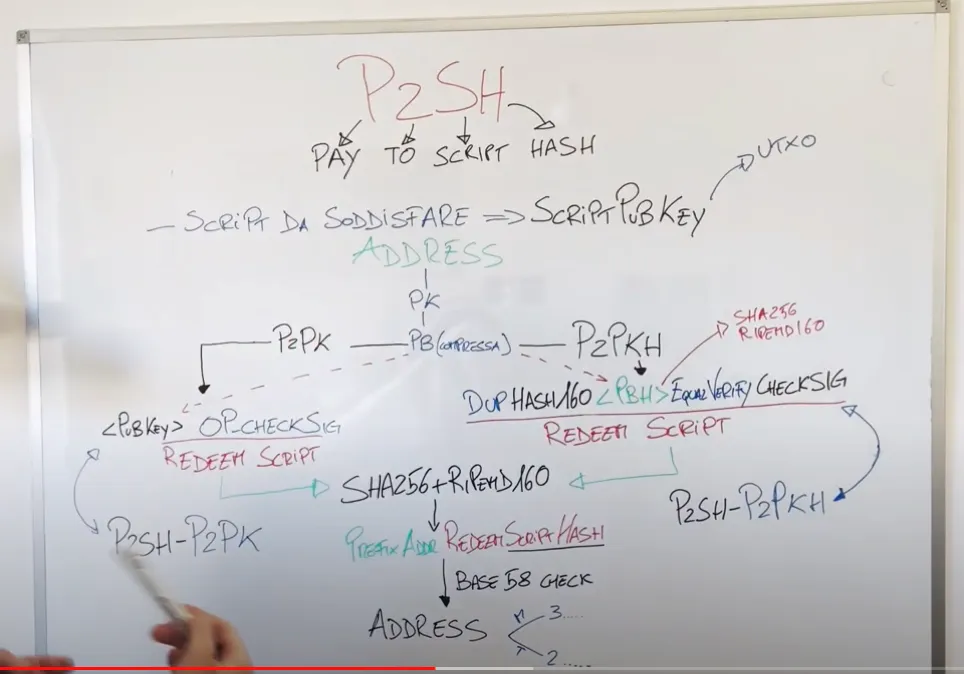 P2SH
PAY TO SCRIPT HASH
UTXO
— SCRIPT DA SODDISFARE => SCRIPTPUBKEY
ADDRESS
PK
P2PK — PB (COMPRESSA) — P2PKH
SHA256
RIPEMD160
DUP HASH160 <PBH> EQUALVERIFY CHECKSIG
REDEEM SCRIPT
<PUBKEY> OP_CHECKSIG
REDEEM SCRIPT
SHA256+RIPEMD160
P2SH-P2PKH
P2SH-P2PK
PREFIX ADDR REDEEM SCRIPT HASH
BASE 58 CHECK
ADDRESS
M 3.....
T 2.....